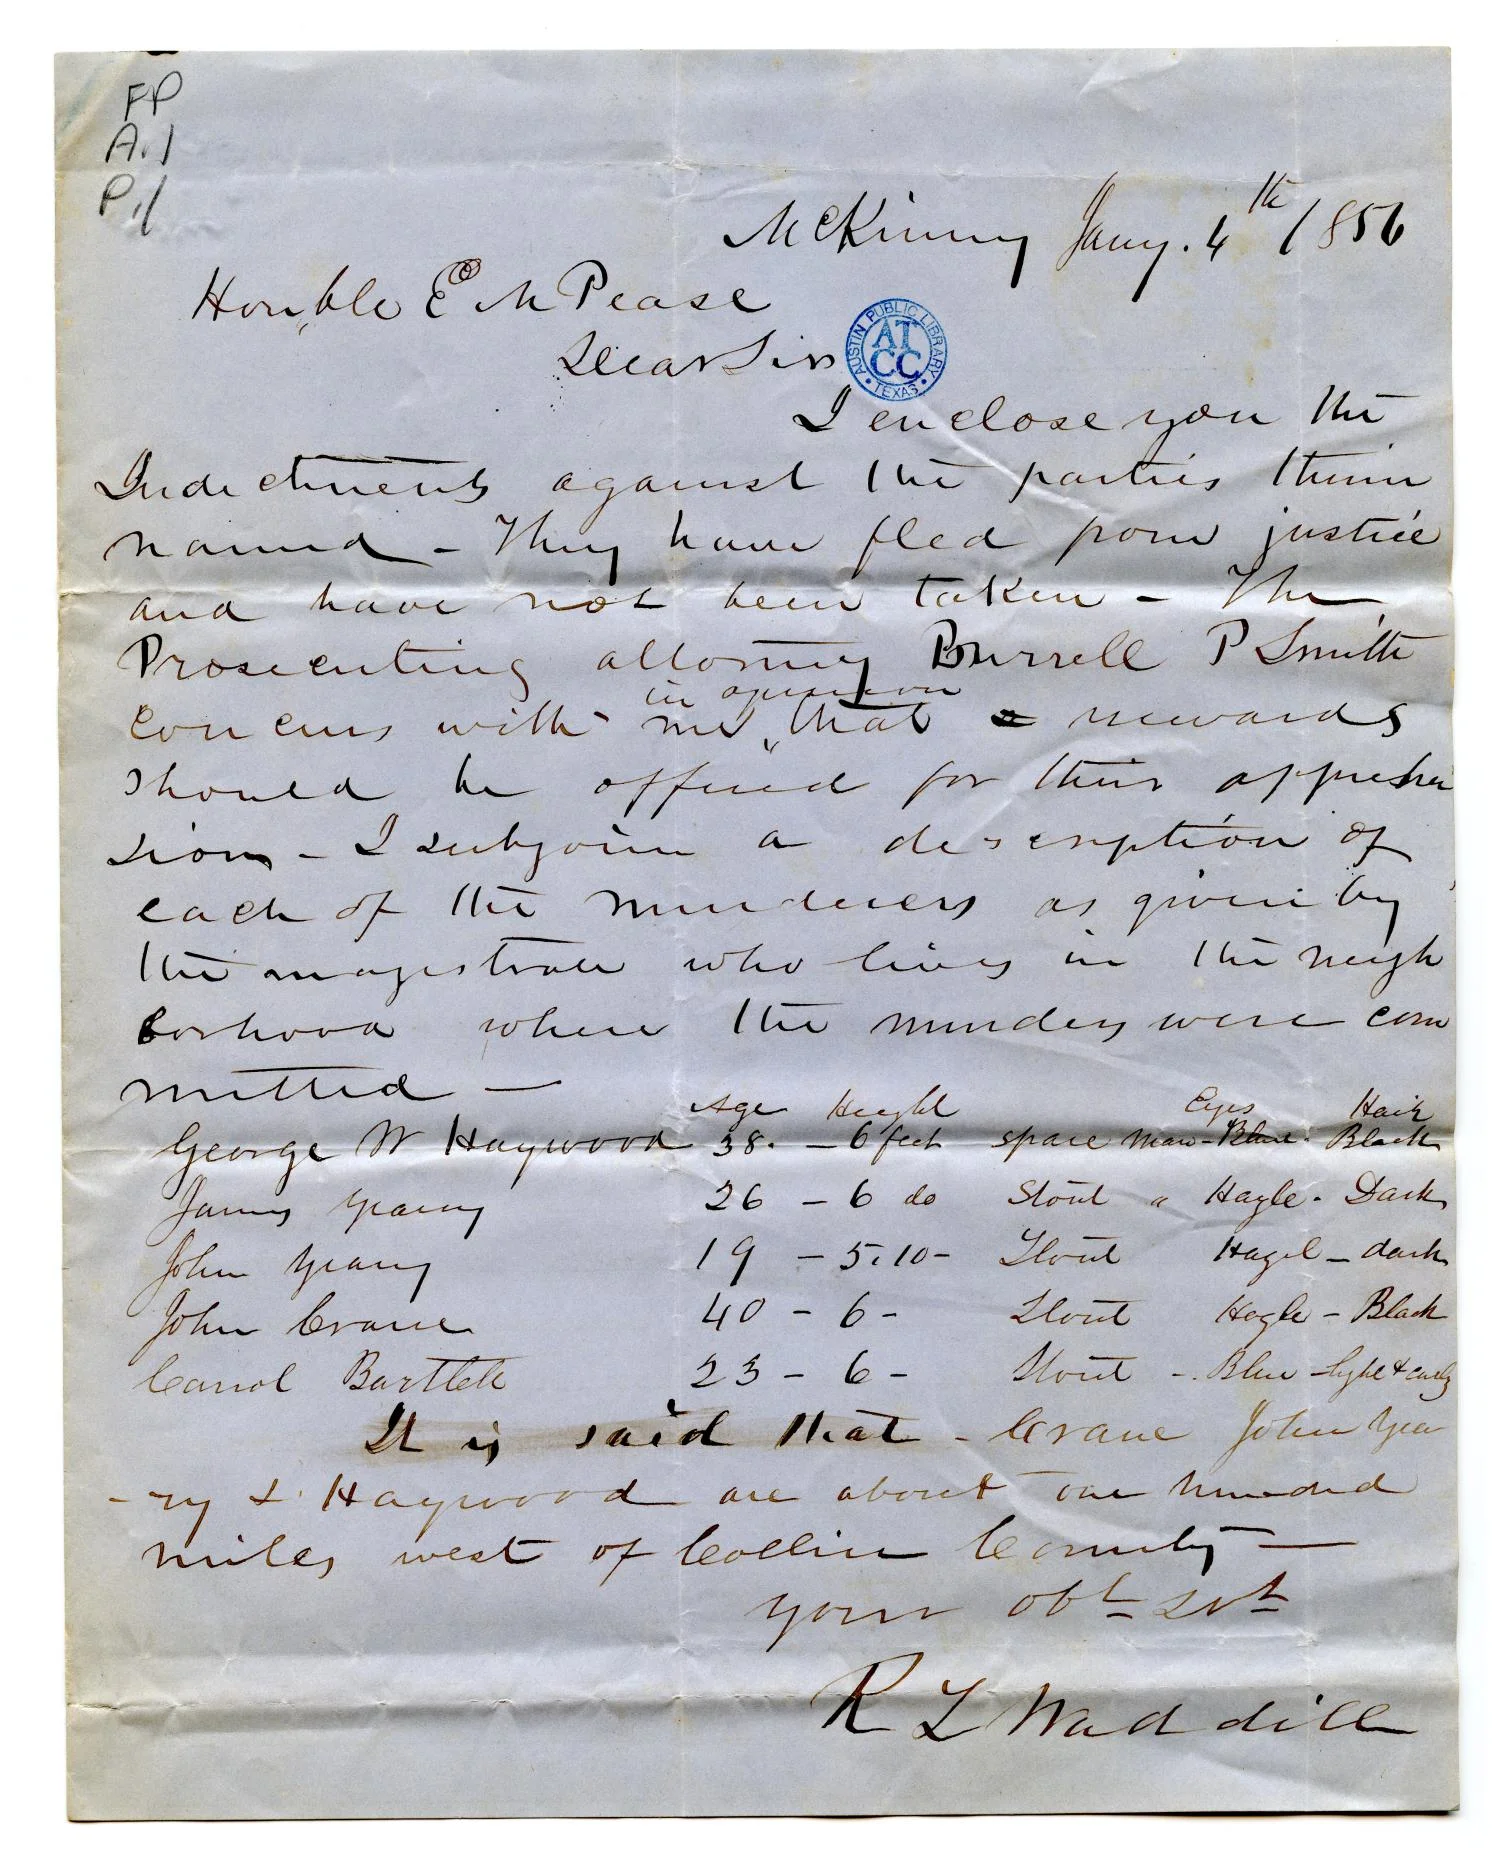 FP
A.1
P.1
McKinny Jany. 4th 1856
Honble E M Pease
Dear Sir
AUSTIN PUBLIC LIBRARY
AT
CC
TEXAS
I enclose you the
Indictments against the parties therein
named - They have fled from justice
and have not been taken - The
Prosecuting attorney Burrell P Smith
in opinion
concurs with me, that rewards
should be offered for their apprehen
sion - I subjoin a description of
each of the murderers as given by
the magistrate who lives in the neigh
borhood where the murders were com
mitted —
Age Height Eyes Hair
George W Haywood 38. - 6 feet spare man - Blue. Black
James Yeary 26 - 6 do Stout " Hazle. Dark
John Yeary 19 - 5.10 - Stout Hazel - dark
John Crane 40 - 6 - Stout Hazle - Black
Carrol Bartlett 23 - 6 - Stout - Blue - light & curly
It is said that - Crane John Yea
-ry & Haywood are about one hundred
miles west of Collin County —
your obt svt
R L Waddill